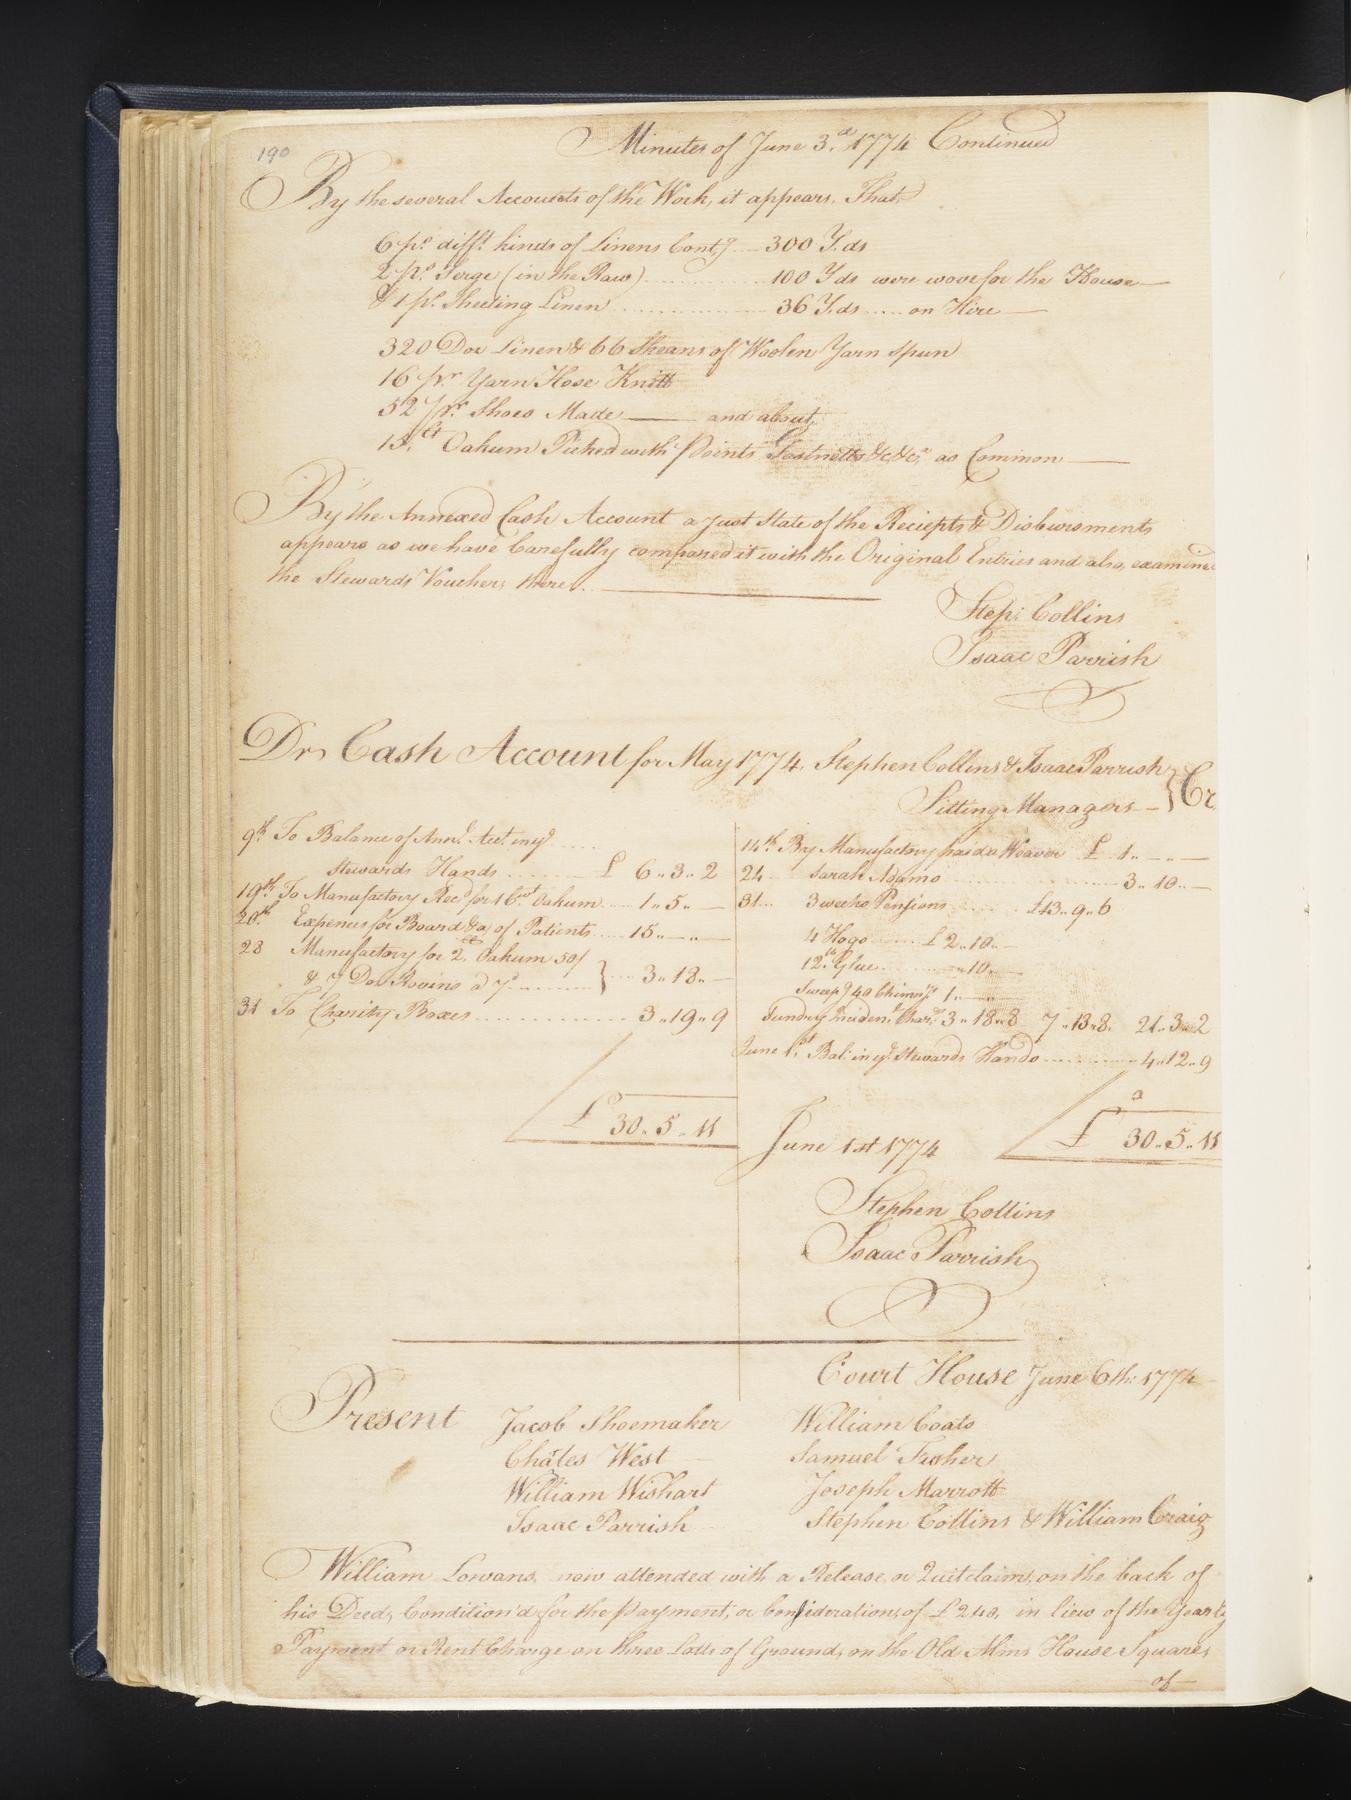 190
Minutes of June 3.d 1774 Continued
By the several Accounts of the Work, it appears, That,
6 ps. difft. kinds of Linens Contg 300 Yds
2 ps. Serge (in the Raw) 100 Yds were wove for the House
& 1 ps. Sheeting Linen 36 Yds on Hire
320 Doz Linen & 66 Skeans of Woolen Yarn Spun
16 pr. Yarn Hose Knitt
52 pr. Shoes Made and about,
13.Ct Oakum Picked with Points &c &c. as Common
By the Annexed Cash Account a just State of the Reciepts & Disbursments
appears as we have Carefully compared it with the Original Entries and also, examine
the Stewards Vouchers there.
Step: Collins
Isaac Parrish
Dr. Cash Account for May 1774, Stephen Collins & Isaac Parrish } Cr
Sitting Managers
9th To Balance of Acct. in ye
Stewards Hands £ 6..3..2
19th To Manufactory Recd for 1 Ct Oakum 1..5..—
20th Expences for Board &a of Patients 15..—..—
28 Manufactory for 2.Ct Oakum 50/
& 7 Doz Rovins a 7 } 3..18..—
31 To Charity Boxes 3..19..9
£ 30..5..11
14th By Manufactory paid a Weaver £ 1..—..—
24 Sarah Adams 3..10..—
31 3 weeks Pensions £13..9..6
4 Hogs £2..10..—
12.lb Glue —10..—
Sweepg 40 Chimnys 1..—..—
Sundry Incident. Char. 3..18..8 7..13..8. 21..3..2
June 1.st Bal: in ye Stewards Hands 4..12..9
£ 30..5..11
June 1st 1774
Stephen Collins
Isaac Parrish
Court House June 6th: 1774
Present Jacob Shoemaker William Coats
Charles West Samuel Fisher
William Wishart Joseph Marrott
Isaac Parrish Stephen Collins & William Craig
William Lowans, now attended with a Release or Quitclaim, on the back of
his Deed, Condition'd for the payment, or Considerations, of £240, in liew of the Yearly
Payment or Rent Charge on three Lotts of Ground, on the Old Alms House Square,
of